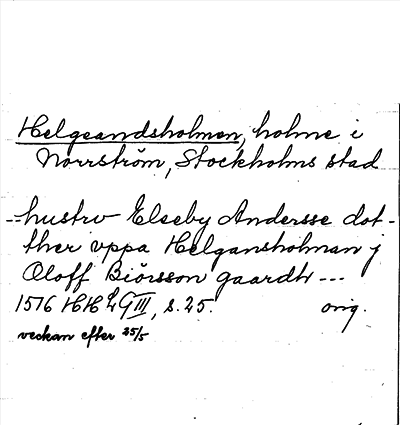 Helgeandsholmen, holme i
Norrström, Stockholms stad
--hustrv Elseby Andersse dot-
ther vppa Helgansholman j
Oloff Biörsson gaardh ---
1576 HH L9III, s. 25. orig.
veckan efter 25/5